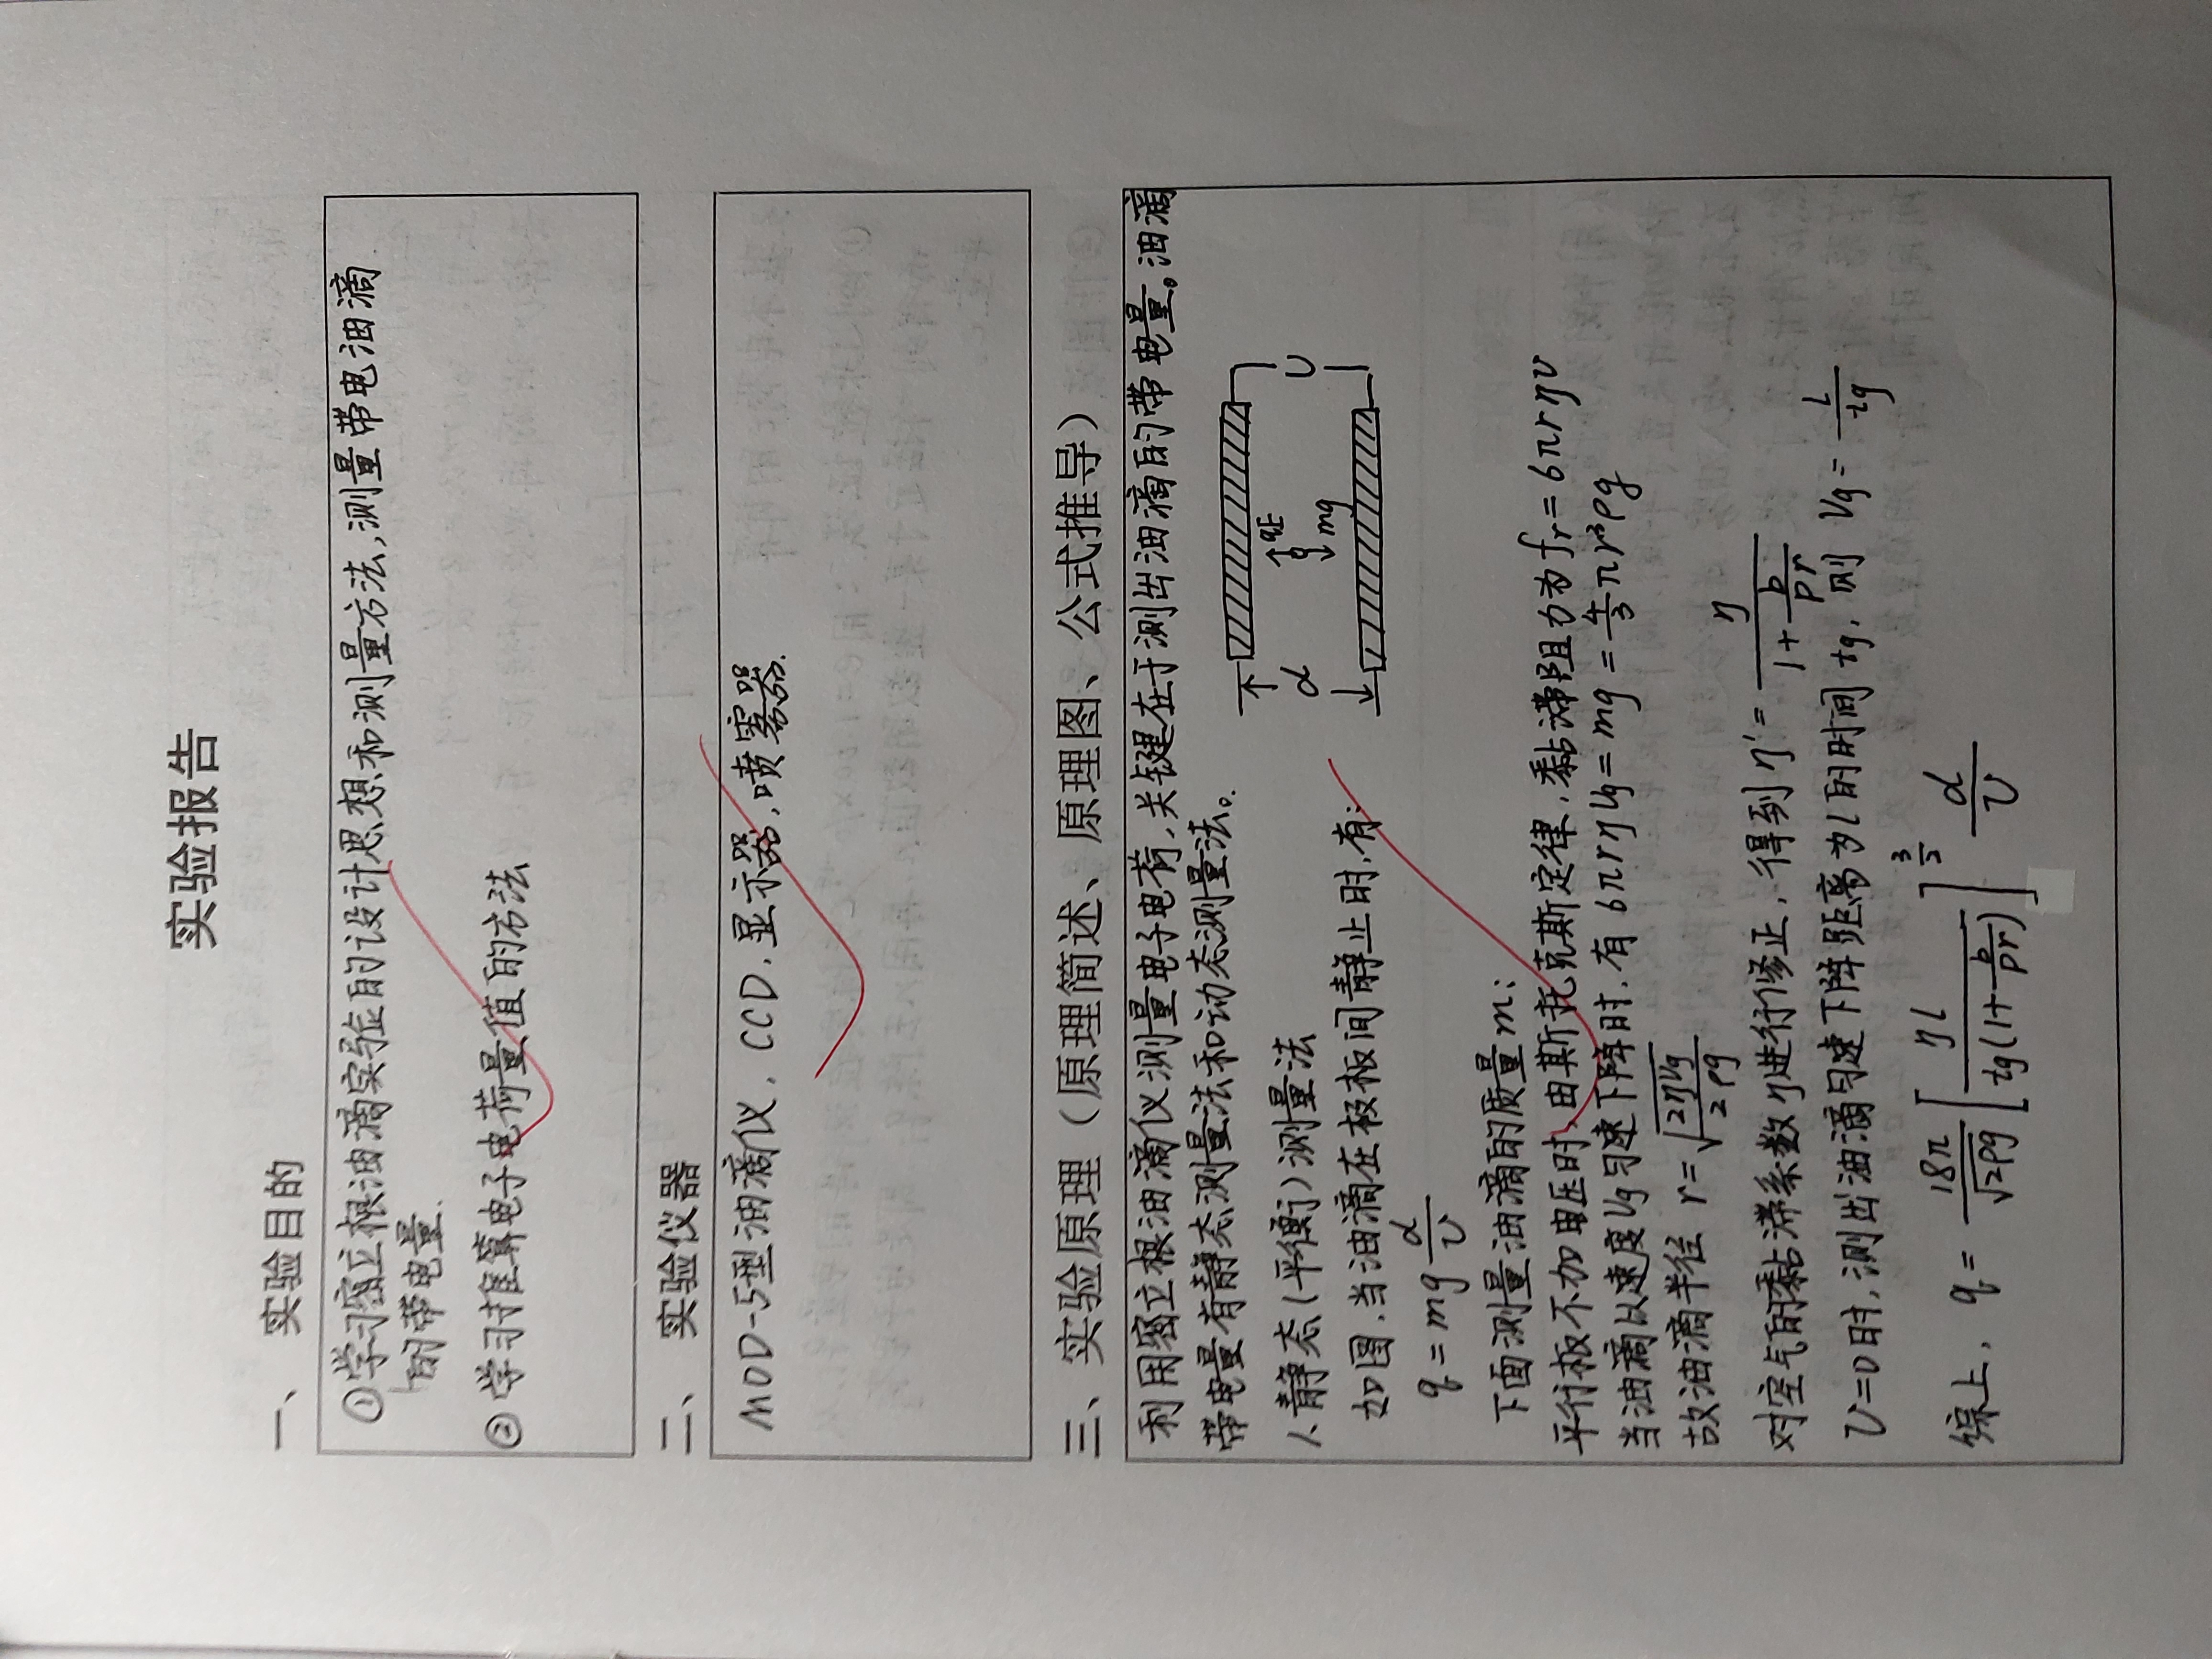 实验报告
一、实验目的
①学习密立根油滴实验的设计思想和测量方法,测量带电油滴
的带电量.
②学习推算电子电荷量值的方法
二、实验仪器
MOD-5型油滴仪, CCD, 显示器, 喷雾器.
三、实验原理（原理简述、原理图、公式推导）
利用密立根油滴仪测量电子电荷,关键在于测出油滴的带电量。油滴
带电量有静态测量法和动态测量法。
1、静态(平衡)测量法
如图,当油滴在极板间静止时,有:
q = mg d/U
d
qE
mg
U
下面测量油滴的质量m:
平行板不加电压时,由斯托克斯定律,黏滞阻力为 fr = 6πrηv
当油滴以速度vg匀速下降时,有 6πrηvg = mg = 4/3 πr³ρg
故油滴半径 r = √(2ηvg / 2ρg)
对空气的黏滞系数η进行修正,得到 η' = η / (1 + b/pr)
U=0时,测出油滴匀速下降距离为l的时间tg, 则 vg = l/tg
综上, q = 18π/√(2ρg) [ηl / tg(1 + b/pr)]^(3/2) d/U